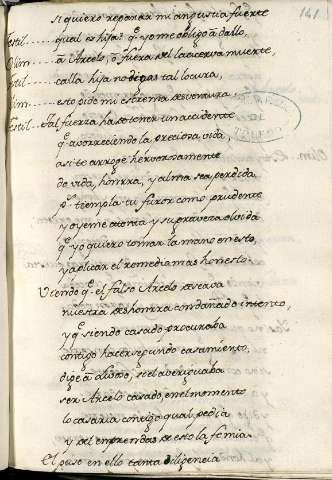 si quiero reparar mi angustia fuerte 141
Fertil.... qual es hija? q̃ yo me obligo a dallo.
Olim..... a Arcelo, o fuera del la acerva muerte,
Fertil..... calla hija no digas tal locura,
Olim..... esto pide mi estrema desventura,
Fertil... Tal fuerza ha de tener un acidente
q̃ avorreciendo la preciosa vida,
asi te arroje hervorosamente
do vida, honrra, y alma sea perdida,
tiempla tu furor como prudente
y oyeme atenta y su graveza olvida
q̃ yo quiero tomar la mano en esto,
y aplicar el remedio mas honesto.
Viendo q̃ el falso Arcelo deseava
nuestra deshonrra con dañado intento,
y q̃ siendo casado procuraba
contigo hacer segundo casamiento,
dije a si el averiguaba
ser Arcelo casado, en el momento
lo casaria contigo qual pedia
de esto la
El puso en ello tanta diligencia